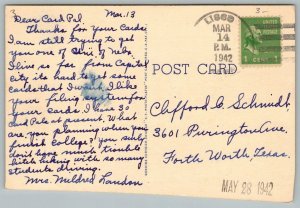 3
Dear Card Pal Mar. 13
Thanks for your Cards.
I am still trying to get
you one of Uni of Nebr.
I live so far from Capital
city its hard to get some
cards that I want. I like
your filing system for
your cards. I have 30
Card Pals at present. What
are you planning when you
finish college? You sure
don't have much trouble
hitch hiking with so many
students driving.
Mrs. Mildred Landon
POST CARD
LISCO
MAR
14
P.M.
1942
1 CENT
Clifford C. Schmidt,
3601 Purington Ave,
Forth Worth, Texas.
MAY 28 1942